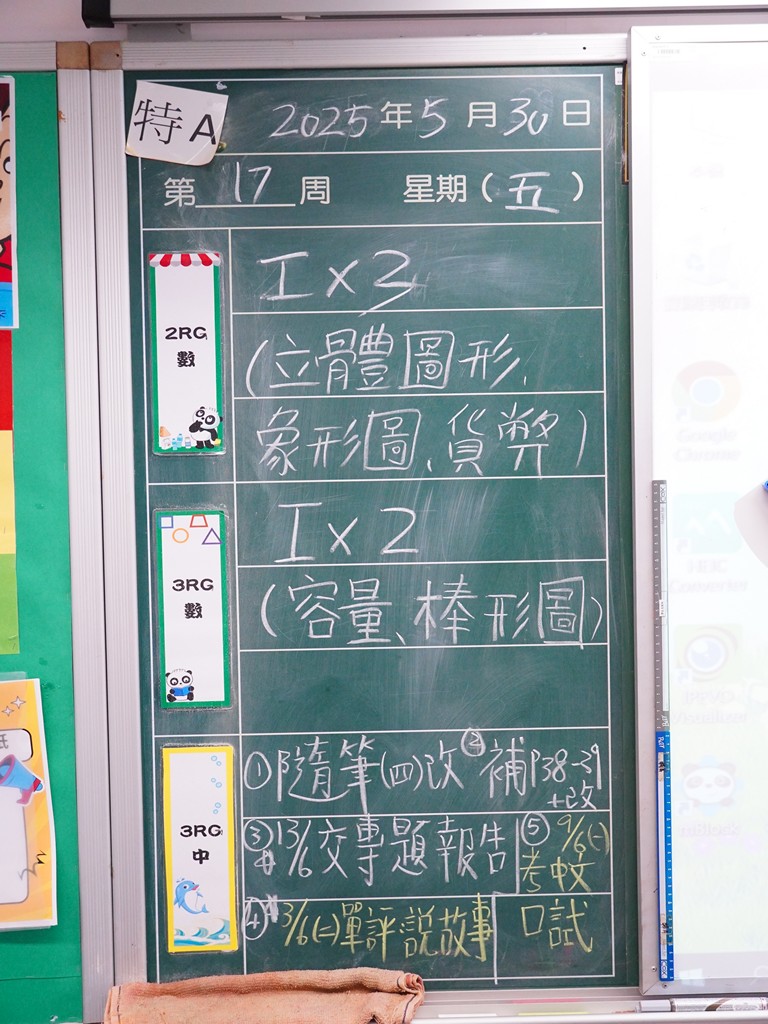 特A
2025年5月30日
第17周 星期(五)
2RG
數
工x3
(立體圖形,
象形圖、貨幣)
3RG
數
工x2
(容量、棒形圖)
3RG
中
①隨筆(四)改 ②補P38-39
+改
③13/6交專題報告
⑤9/6(一)
考中文
口試
④3/6(二)單評說故事